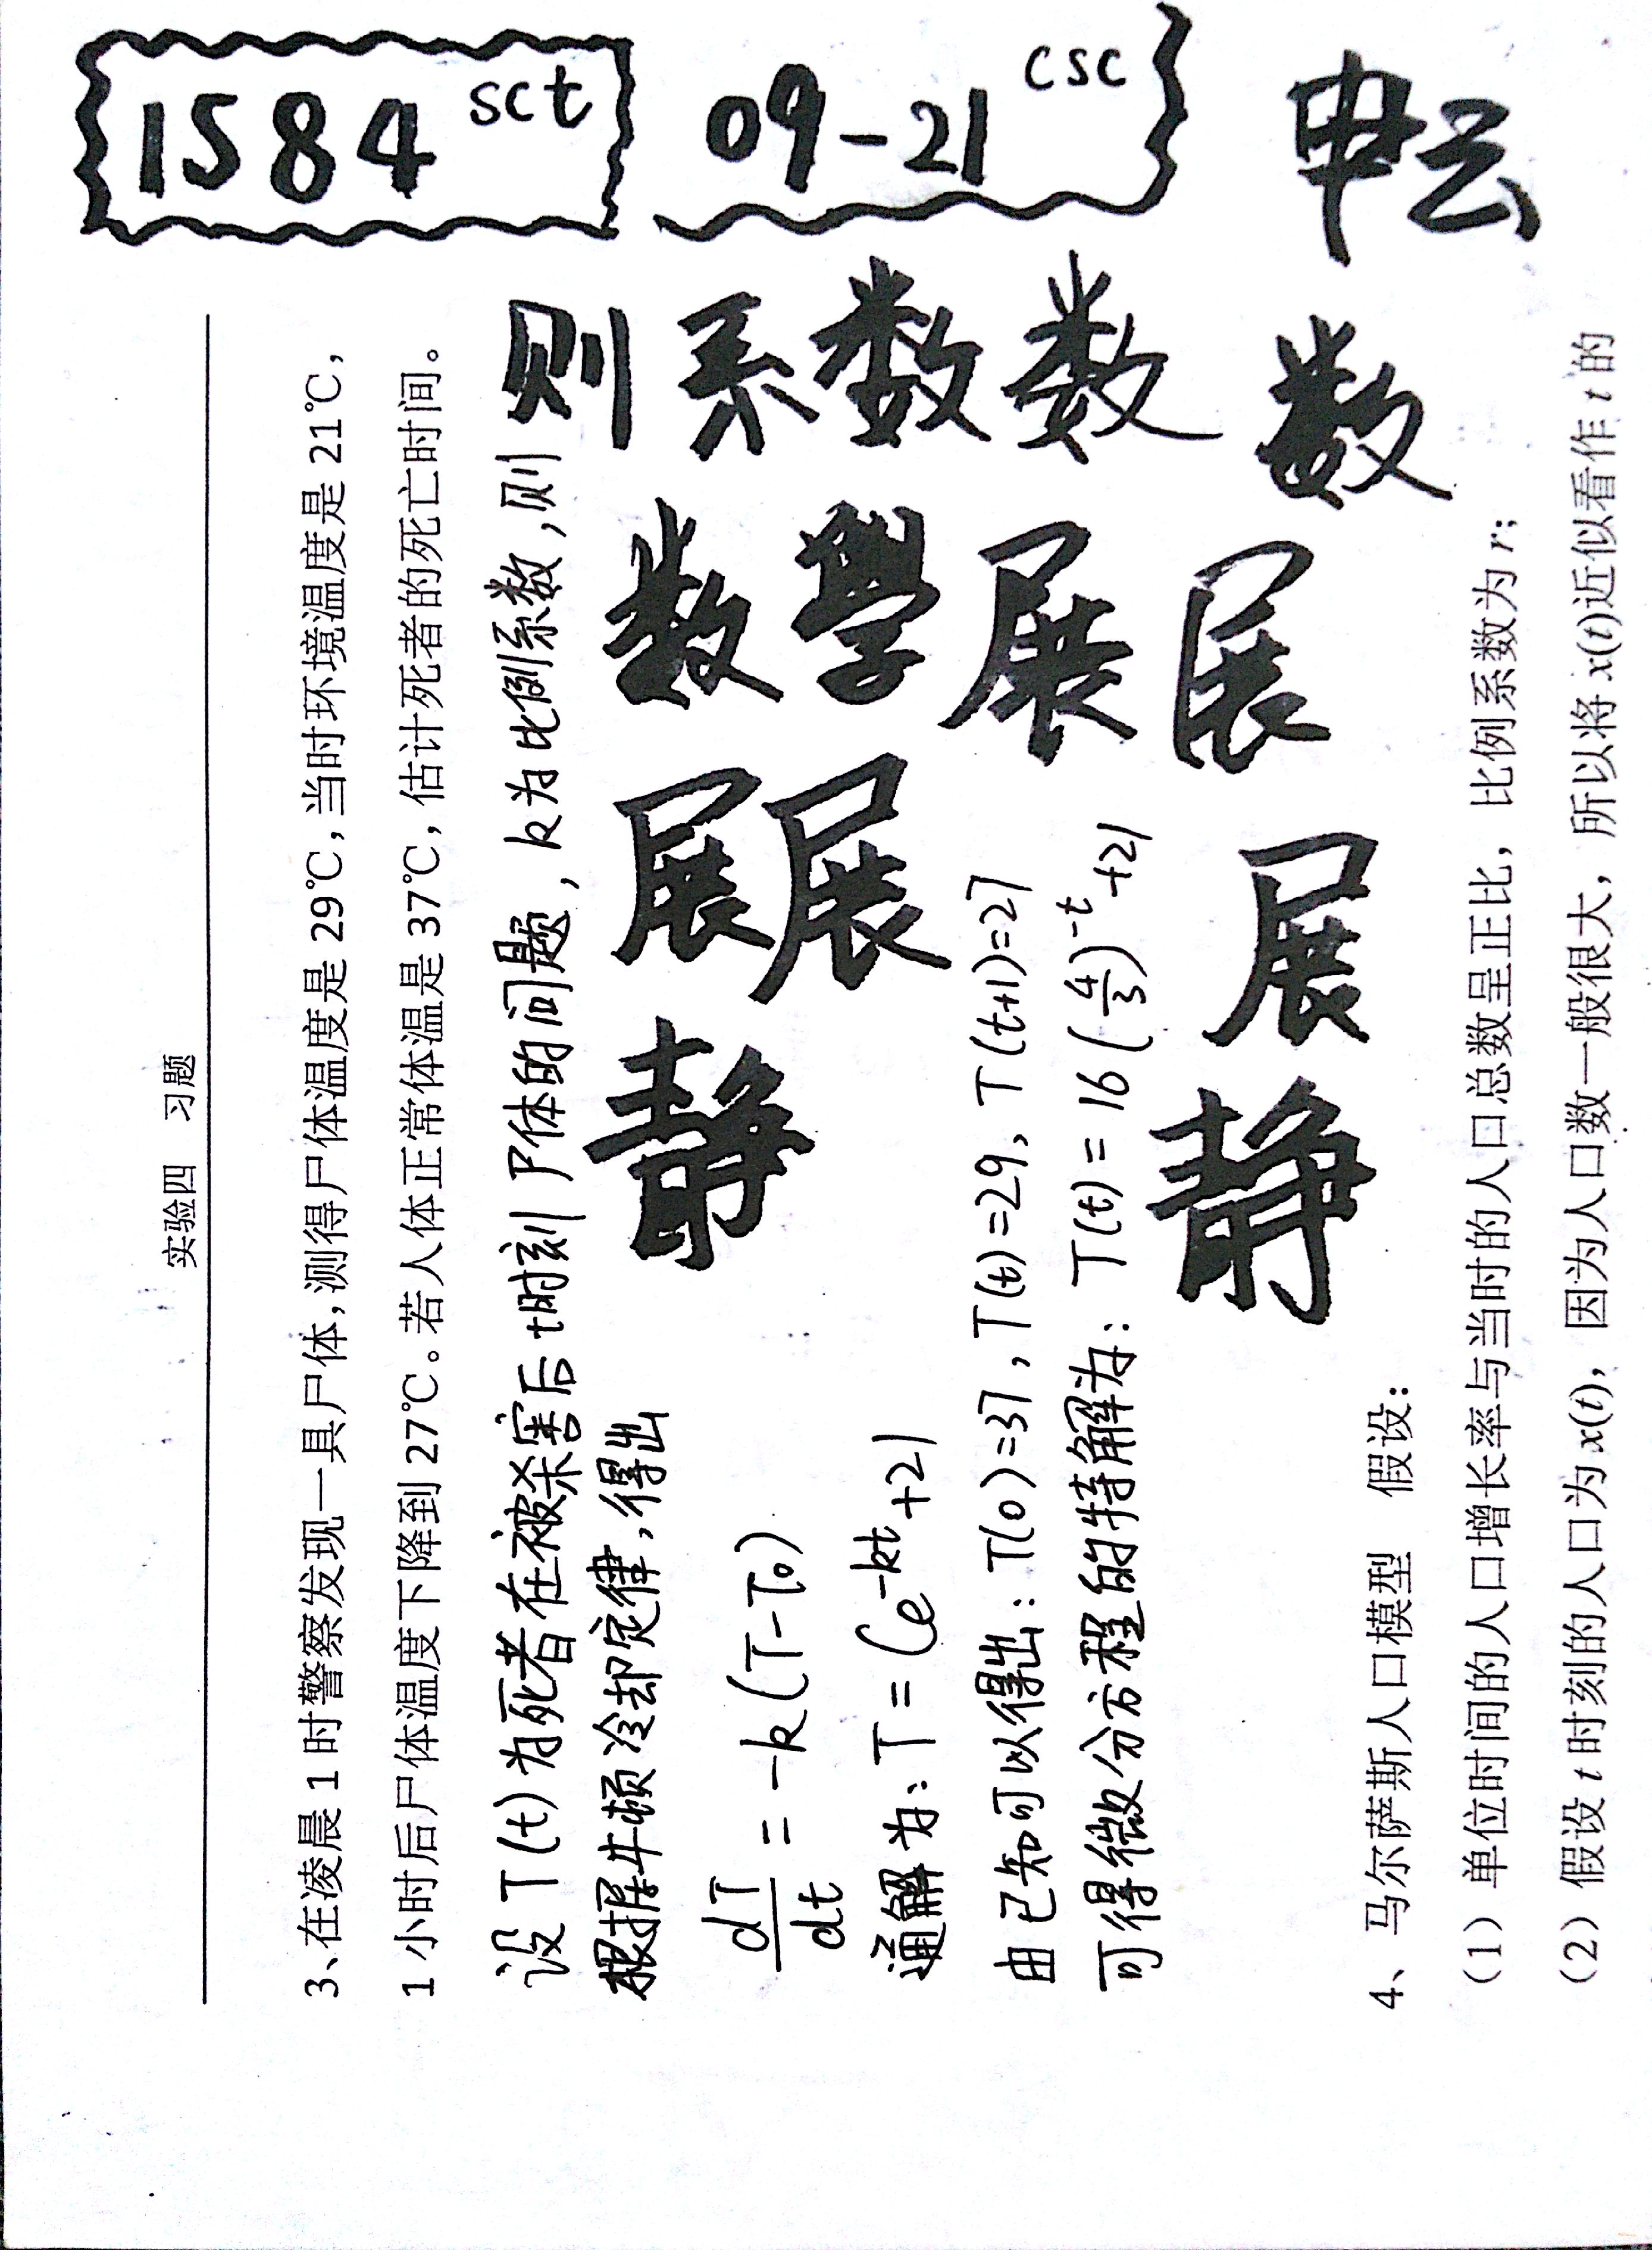 1584 sct
09-21 csc
实验四 习题
3、在凌晨 1 时警察发现一具尸体,测得尸体温度是 29℃,当时环境温度是 21℃,
1 小时后尸体温度下降到 27℃。若人体正常体温是 37℃, 估计死者的死亡时间。
设T(t)为死者在被杀害后t时刻尸体的问题, k为比例系数,则
根据牛顿冷却定律,得出
dT/dt = -k(T-T₀)
通解为: T = Ce^{-kt}+21
由已知可以得出: T(0)=37, T(t)=29, T(t+1)=27
可得微分方程的特解为: T(t)=16(4/3)^{-t}+21
系
数
数
数
数
學
展
展
展
展
展
静
静
4、马尔萨斯人口模型 假设:
(1) 单位时间的人口增长率与当时的人口总数呈正比, 比例系数为 r;
(2) 假设 t 时刻的人口为 x(t), 因为人口数一般很大, 所以将 x(t)近似看作 t 的